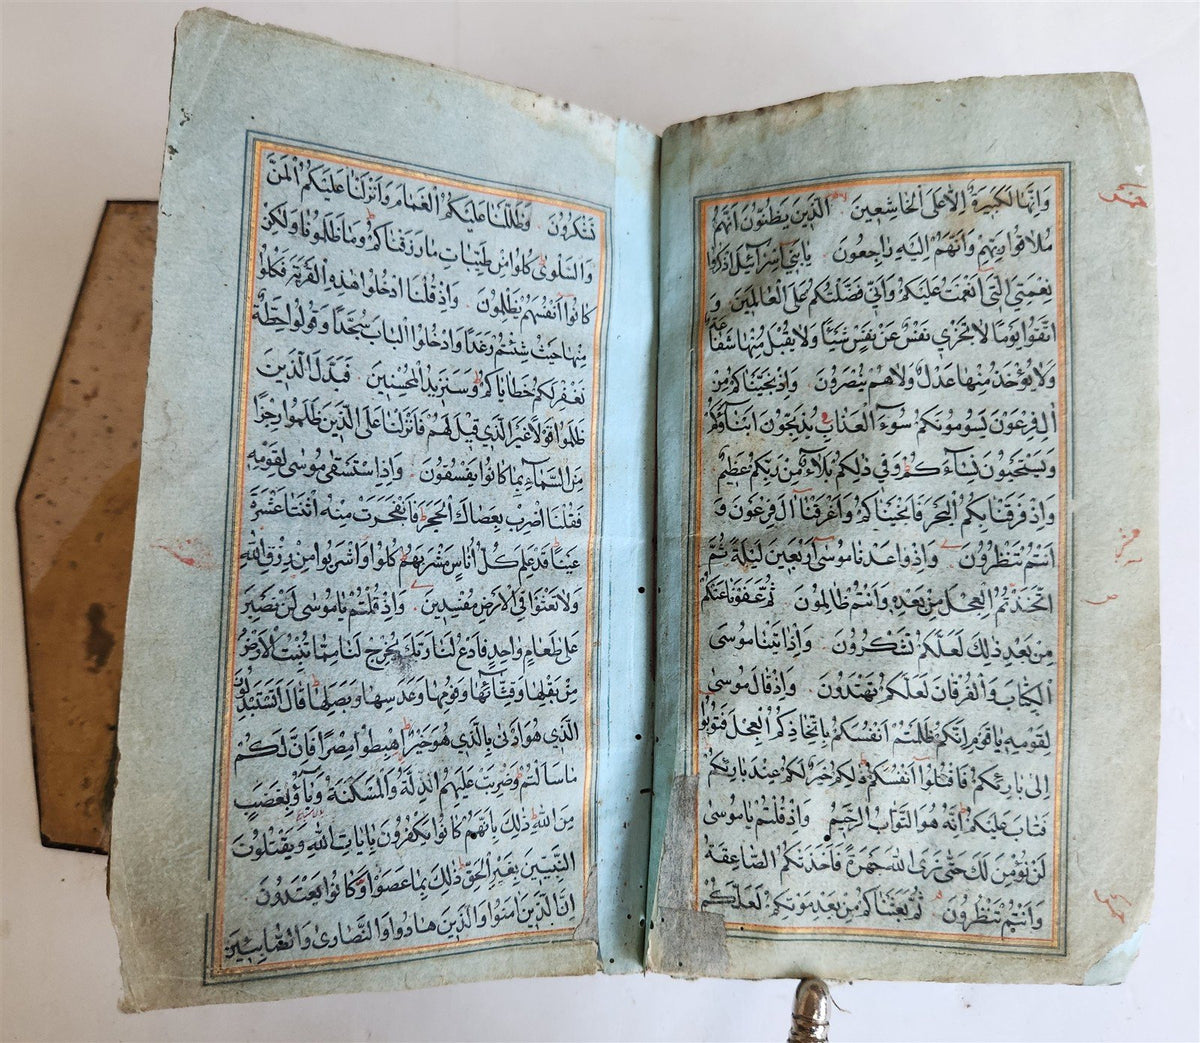 وَاِنَّهَا لَكَبيرَةٌ اِلَّا عَلَى الْخَاشِعينَ الَّذينَ يَظُنُّونَ اَنَّهُمْ
مُلَاقُوا رَبِّهِمْ وَاَنَّهُمْ اِلَيْهِ رَاجِعُونَ يَابَنى اِسْرَآئيلَ اذْكُرُوا
نِعْمَتِيَ الَّتى اَنْعَمْتُ عَلَيْكُمْ وَاَنّى فَضَّلْتُكُمْ عَلَى الْعَالَمينَ وَ
اتَّقُوا يَوْمًا لَا تَجْزى نَفْسٌ عَنْ نَفْسٍ شَيْئًا وَلَا يُقْبَلُ مِنْهَا شَفَاعَةٌ
وَلَا يُؤْخَذُ مِنْهَا عَدْلٌ وَلَا هُمْ يُنْصَرُونَ وَاِذْ نَجَّيْنَاكُمْ مِنْ
اٰلِ فِرْعَوْنَ يَسُومُونَكُمْ سُوٓءَ الْعَذَابِ يُذَبِّحُونَ اَبْنَآءَكُمْ
وَيَسْتَحْيُونَ نِسَآءَكُمْ وَفى ذٰلِكُمْ بَلَآءٌ مِنْ رَبِّكُمْ عَظيمٌ
وَاِذْ فَرَقْنَا بِكُمُ الْبَحْرَ فَاَنْجَيْنَاكُمْ وَاَغْرَقْنَا اٰلَ فِرْعَوْنَ وَ
اَنْتُمْ تَنْظُرُونَ وَاِذْ وَاعَدْنَا مُوسٰى اَرْبَعينَ لَيْلَةً ثُمَّ
اتَّخَذْتُمُ الْعِجْلَ مِنْ بَعْدِهِ وَاَنْتُمْ ظَالِمُونَ ثُمَّ عَفَوْنَا عَنْكُمْ
مِنْ بَعْدِ ذٰلِكَ لَعَلَّكُمْ تَشْكُرُونَ وَاِذْ اٰتَيْنَا مُوسَى
الْكِتَابَ وَالْفُرْقَانَ لَعَلَّكُمْ تَهْتَدُونَ وَاِذْ قَالَ مُوسٰى
لِقَوْمِهِ يَاقَوْمِ اِنَّكُمْ ظَلَمْتُمْ اَنْفُسَكُمْ بِاتِّخَاذِكُمُ الْعِجْلَ فَتُوبُوا
اِلٰى بَارِئِكُمْ فَاقْتُلُوا اَنْفُسَكُمْ ذٰلِكُمْ خَيْرٌ لَكُمْ عِنْدَ بَارِئِكُمْ
فَتَابَ عَلَيْكُمْ اِنَّهُ هُوَ التَّوَّابُ الرَّحيمُ وَاِذْ قُلْتُمْ يَامُوسٰى
لَنْ نُؤْمِنَ لَكَ حَتّٰى نَرَى اللّٰهَ جَهْرَةً فَاَخَذَتْكُمُ الصَّاعِقَةُ
وَاَنْتُمْ تَنْظُرُونَ ثُمَّ بَعَثْنَاكُمْ مِنْ بَعْدِ مَوْتِكُمْ لَعَلَّكُمْ
تَشْكُرُونَ وَظَلَّلْنَا عَلَيْكُمُ الْغَمَامَ وَاَنْزَلْنَا عَلَيْكُمُ الْمَنَّ
وَالسَّلْوٰى كُلُوا مِنْ طَيِّبَاتِ مَا رَزَقْنَاكُمْ وَمَا ظَلَمُونَا وَلٰكِنْ
كَانُوا اَنْفُسَهُمْ يَظْلِمُونَ وَاِذْ قُلْنَا ادْخُلُوا هٰذِهِ الْقَرْيَةَ فَكُلُوا
مِنْهَا حَيْثُ شِئْتُمْ رَغَدًا وَادْخُلُوا الْبَابَ سُجَّدًا وَقُولُوا حِطَّةٌ
نَغْفِرْ لَكُمْ خَطَايَاكُمْ وَسَنَزيدُ الْمُحْسِنينَ فَبَدَّلَ الَّذينَ
ظَلَمُوا قَوْلًا غَيْرَ الَّذى قيلَ لَهُمْ فَاَنْزَلْنَا عَلَى الَّذينَ ظَلَمُوا رِجْزًا
مِنَ السَّمَآءِ بِمَا كَانُوا يَفْسُقُونَ وَاِذِ اسْتَسْقٰى مُوسٰى لِقَوْمِهِ
فَقُلْنَا اضْرِبْ بِعَصَاكَ الْحَجَرَ فَانْفَجَرَتْ مِنْهُ اثْنَتَا عَشْرَةَ
عَيْنًا قَدْ عَلِمَ كُلُّ اُنَاسٍ مَشْرَبَهُمْ كُلُوا وَاشْرَبُوا مِنْ رِزْقِ اللّٰهِ
وَلَا تَعْثَوْا فِى الْاَرْضِ مُفْسِدينَ وَاِذْ قُلْتُمْ يَامُوسٰى لَنْ نَصْبِرَ
عَلٰى طَعَامٍ وَاحِدٍ فَادْعُ لَنَا رَبَّكَ يُخْرِجْ لَنَا مِمَّا تُنْبِتُ الْاَرْضُ
مِنْ بَقْلِهَا وَقِثَّآئِهَا وَفُومِهَا وَعَدَسِهَا وَبَصَلِهَا قَالَ اَتَسْتَبْدِلُونَ
الَّذى هُوَ اَدْنٰى بِالَّذى هُوَ خَيْرٌ اِهْبِطُوا مِصْرًا فَاِنَّ لَكُمْ
مَا سَاَلْتُمْ وَضُرِبَتْ عَلَيْهِمُ الذِّلَّةُ وَالْمَسْكَنَةُ وَبَآؤُ بِغَضَبٍ
مِنَ اللّٰهِ ذٰلِكَ بِاَنَّهُمْ كَانُوا يَكْفُرُونَ بِاٰيَاتِ اللّٰهِ وَيَقْتُلُونَ
النَّبِيّينَ بِغَيْرِ الْحَقِّ ذٰلِكَ بِمَا عَصَوْا وَكَانُوا يَعْتَدُونَ
اِنَّ الَّذينَ اٰمَنُوا وَالَّذينَ هَادُوا وَالنَّصَارٰى وَالصَّابِئينَ